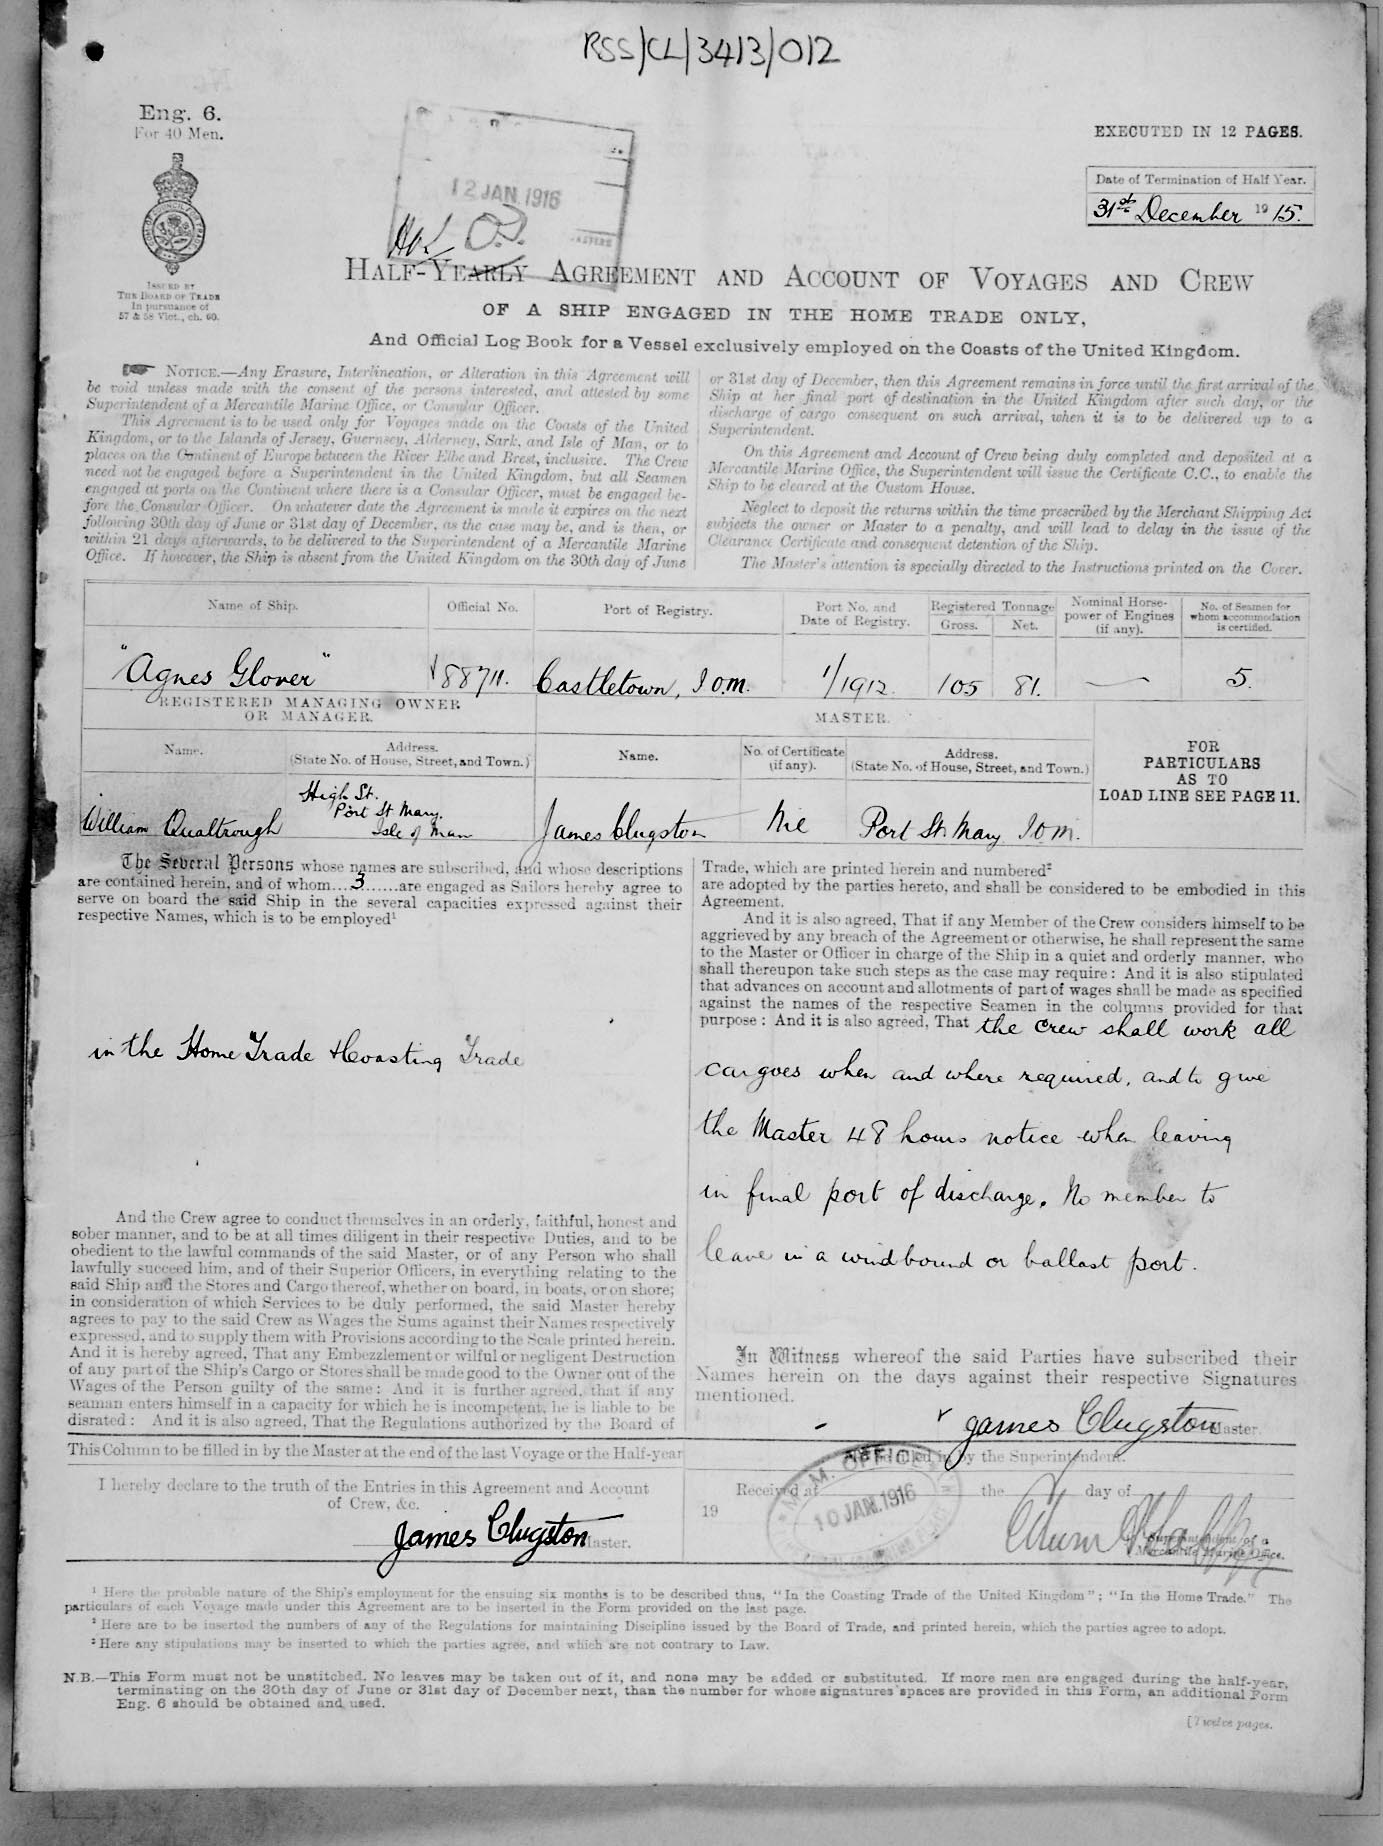 RSS/CL/3413/012
Eng. 6.
For 40 Men.
EXECUTED IN 12 PAGES.
Date of Termination of Half Year.
31st December 1915.
12 JAN. 1916
ISSUED BY
THE BOARD OF TRADE
In pursuance of
57 & 58 Vict., ch. 60.
HALF-YEARLY AGREEMENT AND ACCOUNT OF VOYAGES AND CREW
OF A SHIP ENGAGED IN THE HOME TRADE ONLY,
And Official Log Book for a Vessel exclusively employed on the Coasts of the United Kingdom.
NOTICE.—Any Erasure, Interlineation, or Alteration in this Agreement will
be void unless made with the consent of the persons interested, and attested by some
Superintendent of a Mercantile Marine Office, or Consular Officer.
This Agreement is to be used only for Voyages made on the Coasts of the United
Kingdom, or to the Islands of Jersey, Guernsey, Alderney, Sark, and Isle of Man, or to
places on the Continent of Europe between the River Elbe and Brest, inclusive. The Crew
need not be engaged before a Superintendent in the United Kingdom, but all Seamen
engaged at ports on the Continent where there is a Consular Officer, must be engaged be-
fore the Consular Officer. On whatever date the Agreement is made it expires on the next
following 30th day of June or 31st day of December, as the case may be, and is then, or
within 21 days afterwards, to be delivered to the Superintendent of a Mercantile Marine
Office. If however, the Ship is absent from the United Kingdom on the 30th day of June
or 31st day of December, then this Agreement remains in force until the first arrival of the
Ship at her final port of destination in the United Kingdom after such day, or the
discharge of cargo consequent on such arrival, when it is to be delivered up to a
Superintendent.
On this Agreement and Account of Crew being duly completed and deposited at a
Mercantile Marine Office, the Superintendent will issue the Certificate C.C., to enable the
Ship to be cleared at the Custom House.
Neglect to deposit the returns within the time prescribed by the Merchant Shipping Act
subjects the owner or Master to a penalty, and will lead to delay in the issue of the
Clearance Certificate and consequent detention of the Ship.
The Master's attention is specially directed to the Instructions printed on the Cover.
Name of Ship. Official No. Port of Registry. Port No. and Date of Registry. Registered Tonnage Gross. Net. Nominal Horse-power of Engines (if any). No. of Seamen for whom accommodation is certified.
"Agnes Glover" 88711. Castletown, I.O.M. 1/1912. 105 81. — 5.
REGISTERED MANAGING OWNER
OR MANAGER.
MASTER.
Name. Address. (State No. of House, Street, and Town.) Name. No. of Certificate (if any). Address. (State No. of House, Street, and Town.)
FOR
PARTICULARS
AS TO
LOAD LINE SEE PAGE 11.
William Qualtrough High St. Port St Mary. Isle of Man James Clugston Nil Port St Mary I.O.M.
The Several Persons whose names are subscribed, and whose descriptions
are contained herein, and of whom...3......are engaged as Sailors hereby agree to
serve on board the said Ship in the several capacities expressed against their
respective Names, which is to be employed¹
in the Home Trade & Coasting Trade
And the Crew agree to conduct themselves in an orderly, faithful, honest and
sober manner, and to be at all times diligent in their respective Duties, and to be
obedient to the lawful commands of the said Master, or of any Person who shall
lawfully succeed him, and of their Superior Officers, in everything relating to the
said Ship and the Stores and Cargo thereof, whether on board, in boats, or on shore;
in consideration of which Services to be duly performed, the said Master hereby
agrees to pay to the said Crew as Wages the Sums against their Names respectively
expressed, and to supply them with Provisions according to the Scale printed herein.
And it is hereby agreed, That any Embezzlement or wilful or negligent Destruction
of any part of the Ship's Cargo or Stores shall be made good to the Owner out of the
Wages of the Person guilty of the same: And it is further agreed, that if any
seaman enters himself in a capacity for which he is incompetent, he is liable to be
disrated: And it is also agreed, That the Regulations authorized by the Board of
Trade, which are printed herein and numbered²
are adopted by the parties hereto, and shall be considered to be embodied in this
Agreement.
And it is also agreed, That if any Member of the Crew considers himself to be
aggrieved by any breach of the Agreement or otherwise, he shall represent the same
to the Master or Officer in charge of the Ship in a quiet and orderly manner, who
shall thereupon take such steps as the case may require: And it is also stipulated
that advances on account and allotments of part of wages shall be made as specified
against the names of the respective Seamen in the columns provided for that
purpose: And it is also agreed, That the crew shall work all
cargoes when and where required, and to give
the Master 48 hours notice when leaving
in final port of discharge. No member to
leave in a windbound or ballast port.
In Witness whereof the said Parties have subscribed their
Names herein on the days against their respective Signatures
mentioned.
James Clugston Master.
This Column to be filled in by the Master at the end of the last Voyage or the Half-year
I hereby declare to the truth of the Entries in this Agreement and Account
of Crew, &c.
James Clugston Master.
by the Superintendent.
Received at the day of
19
M.M. OFFICE
10 JAN. 1916
Superintendent of a
Mercantile Marine Office.
¹ Here the probable nature of the Ship's employment for the ensuing six months is to be described thus, "In the Coasting Trade of the United Kingdom"; "In the Home Trade." The
particulars of each Voyage made under this Agreement are to be inserted in the Form provided on the last page.
² Here are to be inserted the numbers of any of the Regulations for maintaining Discipline issued by the Board of Trade, and printed herein, which the parties agree to adopt.
³ Here any stipulations may be inserted to which the parties agree, and which are not contrary to Law.
N.B.—This Form must not be unstitched. No leaves may be taken out of it, and none may be added or substituted. If more men are engaged during the half-year,
terminating on the 30th day of June or 31st day of December next, than the number for whose signatures spaces are provided in this Form, an additional Form
Eng. 6 should be obtained and used.
[Twelve pages.